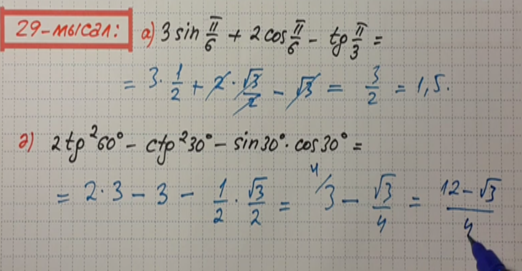 29-мысал: а) 3 sin π/6 + 2 cos π/6 − tg π/3 =
= 3 · 1/2 + 2 · √3/2 − √3 = 3/2 = 1,5.
ә) 2tg²60° − ctg²30° − sin30° · cos30° =
= 2 · 3 − 3 − 1/2 · √3/2 = ⁴/3 − √3/4 = (12 − √3)/4